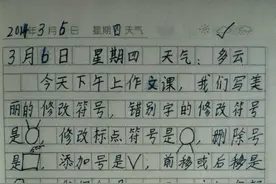 2014年3月6日 星期四天气
3月6日 星期四 天气:多云
今天下午上作文课,我们写美
丽的修改符号,错别字的修改符号
是 修改标点符号是 ,删除号
是 ,添加号是∨,前移或后移号